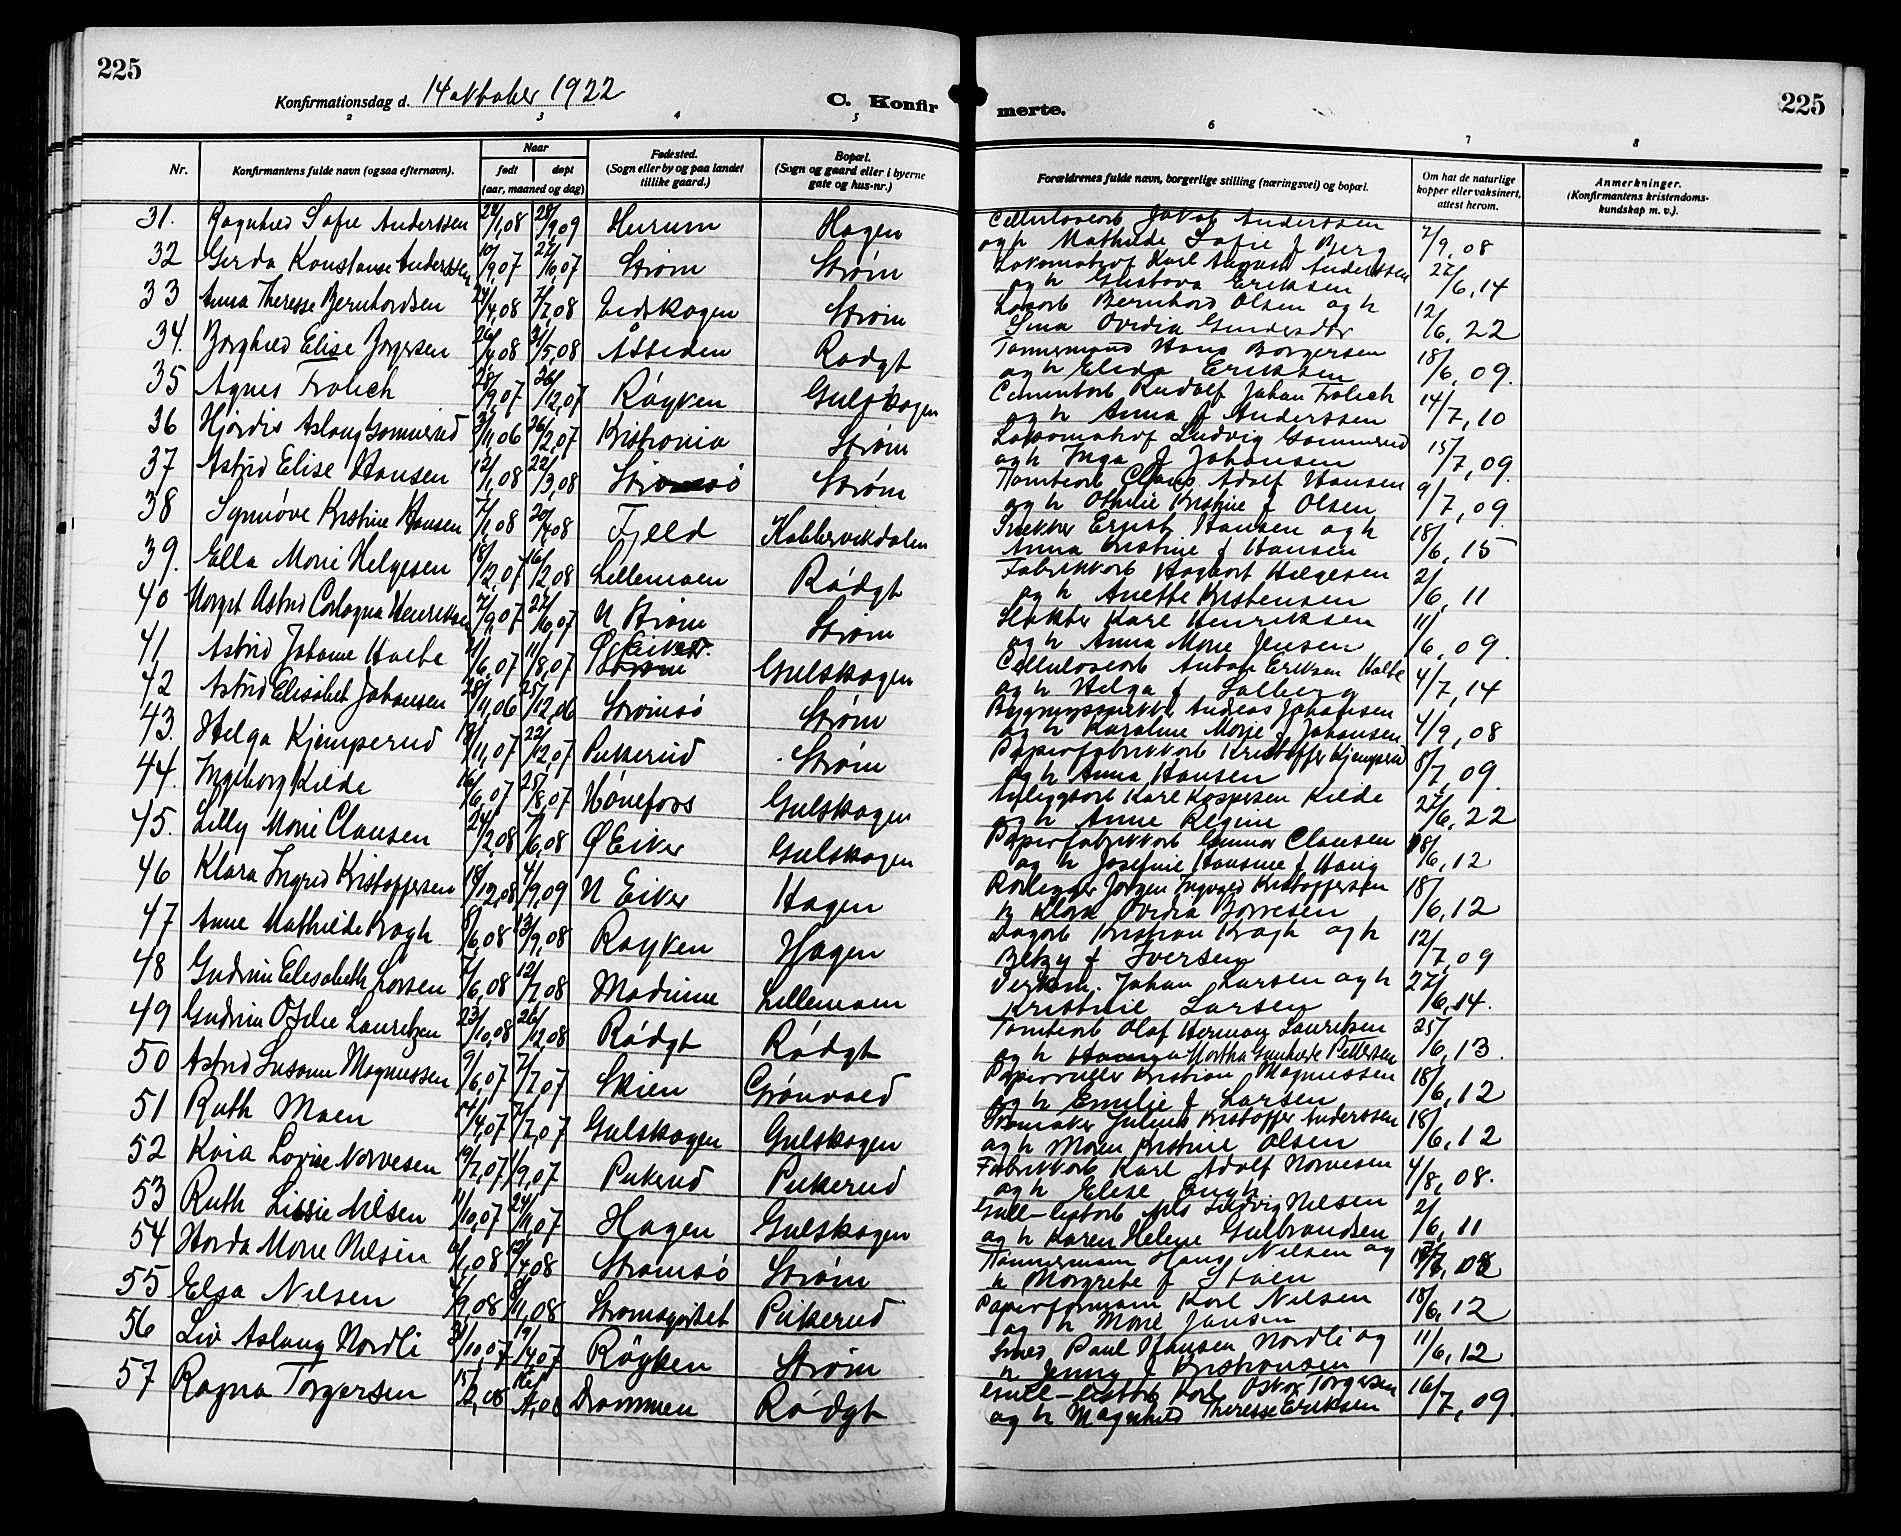 225
Konfirmationsdag d. 14 oktober 1922
C. Konfirmerte.
225
2 3 4 5 6 7 8
Nr. Konfirmantens fulde navn (ogsaa efternavn). Naar født døpt (aar, maaned og dag) Fødested. (Sogn eller by og paa landet tillike gaard.) Bopæl. (Sogn og gaard eller i byerne gate og hus-nr.) Forældrenes fulde navn, borgerlige stilling (næringsvei) og bopæl. Om hat de naturlige kopper eller vaksinert, attest herom. Anmerkninger. (Konfirmantens kristendoms-kundskap m. v.).
31. Ragnhild Sofie Anderssen 22/1,08 28/9,09 Hurum Hagen Cellulosearb Jakob Anderssen
og h Mathilde Sofie f Berg 2/9,08
32 Gerda Konstanse Anderssen 10/9,07 27/10,07 Strøm Strøm Lokomotivf Karl August Anderssen
og h Gustava Eriksen 22/6,14
33 Anna Therese Bernhardsen 24/4,08 7/7,08 Eidskogen Strøm Løsarb Bernhard Olsen og h
Sina Ovidia Gundersdtr 12/6,22
34. Borghild Elise Borgersen 26/4,08 31/5,08 Åssiden Rødgt Tømmermand Hans Borgersen
og h Elida Eriksen 18/6,09.
35 Agnes Frølich 28/9,07 26/12,07 Røyken Gulskogen Cementarb Rudolf Johan Frølich
og h Anna f Anderssen 14/7,10
36 Hjørdis Aslaug Gommerud 3/11,06 26/2,07 Kristiania Strøm Lokomotivf Ludvig Gommerud
og h Inga f Johansen 15/7,09.
37 Astrid Elise Hansen 12/1,08 22/3,08 Strømsø Strøm Tomtearb Claus Adolf Hansen
og h Othilie Kristine f Olsen 9/7,09
38 Synnøve Kristine Hansen 7/1,08 20/4,08 Fjeld Kobbervikdalen Snekker Ernst Hansen og h
Anna Kristine f Hansen 18/6,15
39. Ella Marie Helgesen 18/12,07 16/2,08 Lillemoen Rødgt Fabrikkarb Hagbart Helgesen
og h Anette Kristensen 2/6,11
40 Margit Astrid Henriksen 7/9,07 27/10,07 N Strøm Strøm Slakter Karl Henriksen
og h Anna Marie Jensen 11/6,09.
41 Astrid Johanne Holbe 11/6,07 11/8,07 Ø Eiker. Strøm Gulskogen Cellulosearb Anton Eriksen Holbe
og h Helga f Solberg 4/7,14
42 Astrid Elisabet Johansen 28/11,06 25/12,06 Strømsø Strøm Bygningssnekker Andreas Johansen
og h Karoline Marie f Johansen 4/9,08
43. Helga Kjemperud 18/11,07 22/12,07 Pukerud Strøm Papirfabrikkarb Kristoffer Kjemperud
og h Anna Hansen 8/7,09.
44. Ingeborg Kilde 16/6,07 25/8,07 Hønefoss Gulskogen Karl Kaspersen Kilde
og h Anne Regine 27/6,22
45. Lilly Marie Clausen 24/2,08 7/6,08 Ø Eiker Gulskogen Papirfabrikkarb Gunnar Clausen
og h Josefine Hansine f Haug 18/6,12
46 Klara Ingrid Kristoffersen 18/12,08 4/9,09 N Eiker Hagen Rørlegger Jørgen Ingvald Kristoffersen
h Klara Ovidia Børresen 18/6,12
47 Anne Mathilde Krogh 8/6,08 13/9,08 Røyken Hagen Dagarb Kristian Krogh og h
Betzy f Iversen 12/7,09
48 Gudrun Elisabeth Larsen 7/6,08 12/7,08 Modum Lillemoen Johan Larsen og h
Kristine Larsen 27/6,14.
49 Gudrun Otilie Lauritzen 23/10,08 26/12,08 Rødgt Rødgt Tomtearb Olaf Herman Lauritzen
og h Martha Gunhilde Pettersen 25/6,13.
50 Astrid Susanne Magnussen 9/6,07 7/7,07 Skien Grønvold Papirruller Kristian Magnussen
og h Emilie f Larsen 18/6,12
51 Ruth Moen 14/4,07 7/7,07 Gulskogen Gulskogen Skomaker Julius Kristoffer Anderssen
og h Maren Kristine Olsen 18/6,12
52 Kaia Lovise Norvesen 19/7,07 1/9,07 Pukerud Pukerud Fabrikkarb Karl Adolf Norvesen
og h Elise Engh 4/8,08.
53 Ruth Lissie Nilsen 11/10,07 24/11,07 Hagen Gulskogen Gull-listarb Nils Ludvig Nilsen
og h Karen Helene Gulbrandsen 2/6,11
54 Horda Marie Nilsen 6/1,08 12/4,08 Strømsø Strøm Tømmermann Hans Nilsen og
h Margrete f Støen
55 Elsa Nilsen 4/9,08 8/11,08 Strømsgodset Pukerud Papirformann Karl Nilsen
og h Marie Jansen 18/6,12
56 Liv Aslaug Nordli 21/10,07 19/4,07 Røyken Strøm Smed Paul Johansen Nordli og
h Jenny f Kristiansen 11/6,12
57 Ragna Torgersen 15/2,08 Drammen Rødgt Gull-listarb Karl Oskar Torgersen
og h Magnhild Therese Eriksen 16/7,09.